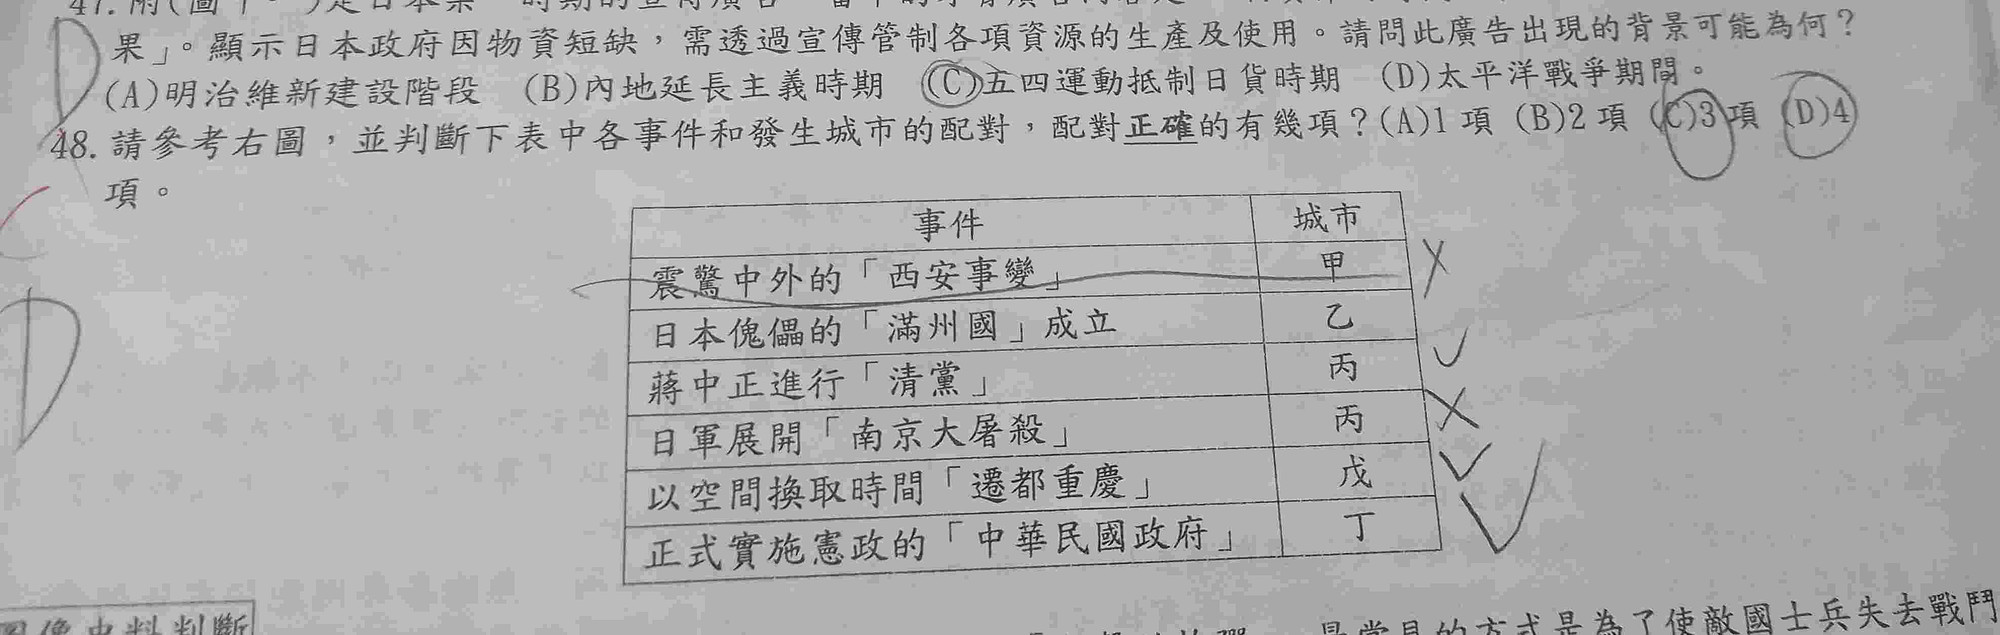 果」。顯示日本政府因物資短缺，需透過宣傳管制各項資源的生產及使用。請問此廣告出現的背景可能為何？
(A)明治維新建設階段 (B)內地延長主義時期 (C)五四運動抵制日貨時期 (D)太平洋戰爭期間。
48. 請參考右圖，並判斷下表中各事件和發生城市的配對，配對正確的有幾項？(A)1 項 (B)2 項 (C)3 項 (D)4
項。
事件 城市
震驚中外的「西安事變」 甲
日本傀儡的「滿州國」成立 乙
蔣中正進行「清黨」 丙
日軍展開「南京大屠殺」 丙
以空間換取時間「遷都重慶」 戊
正式實施憲政的「中華民國政府」 丁
D
D
圖像史料判斷
是常見的方式是為了使敵國士兵失去戰鬥